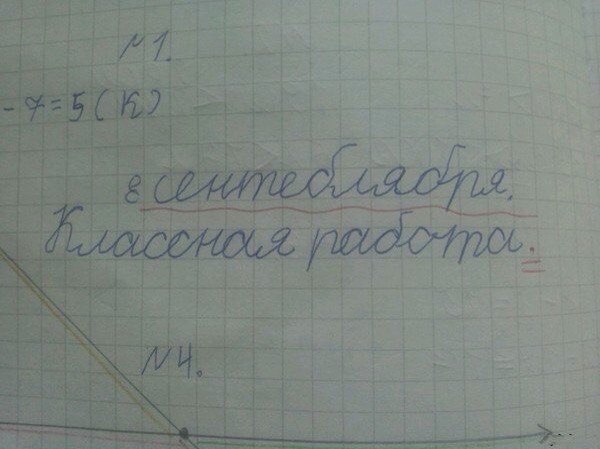 N1.
-7=5(К)
8 сентеблября.
Классная работа.
N4.